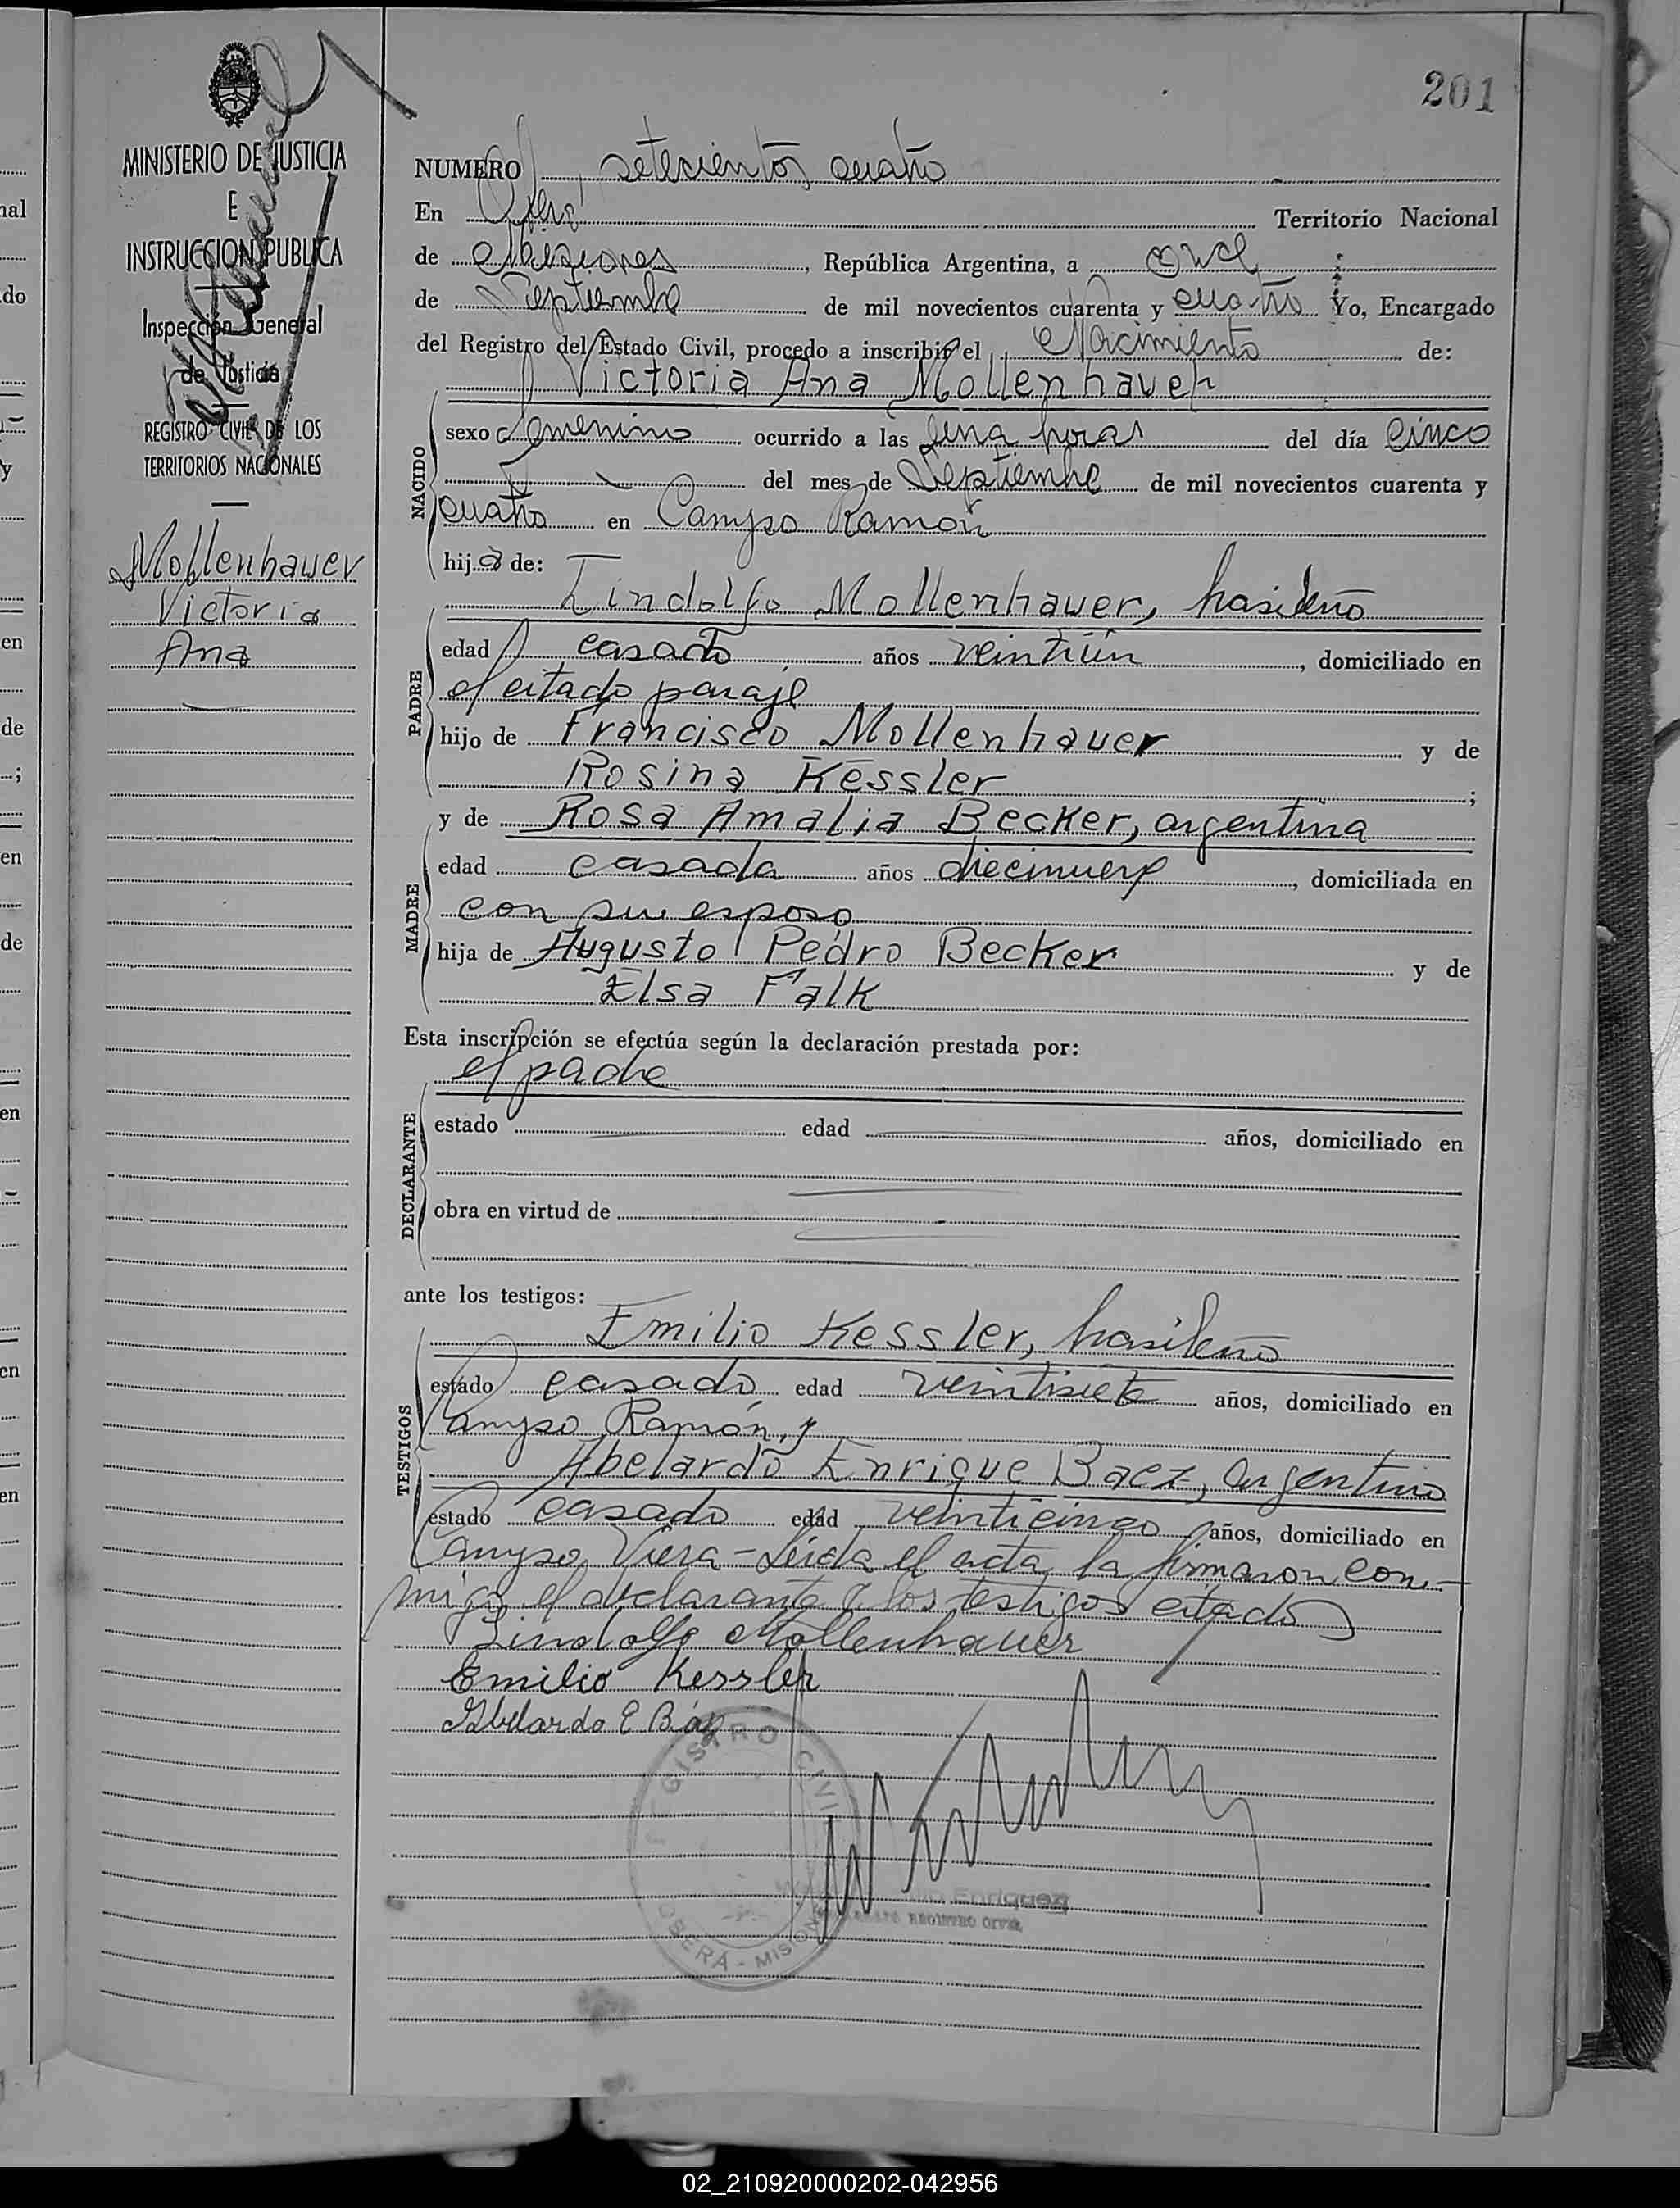 201
MINISTERIO DE JUSTICIA
E
INSTRUCCION PUBLICA
Inspección General
de Justicia
REGISTRO CIVIL DE LOS
TERRITORIOS NACIONALES
Mollenhauer
Victoria
Ana
NUMERO setecientos cuatro
En Oberá Territorio Nacional
de Misiones, República Argentina, a once
de Septiembre de mil novecientos cuarenta y cuatro Yo, Encargado
del Registro del Estado Civil, procedo a inscribir el Nacimiento de:
Victoria Ana Mollenhauer
NACIDO
sexo femenino ocurrido a las una horas del día cinco
del mes de Septiembre de mil novecientos cuarenta y
cuatro en Campo Ramón
hija de:
Lindolfo Mollenhauer, brasileño
PADRE
edad casado años veintiún, domiciliado en
el citado paraje
hijo de Francisco Mollenhauer y de
Rosina Kessler;
y de Rosa Amalia Becker, argentina
MADRE
edad casada años diecinueve, domiciliada en
con su esposo
hija de Augusto Pedro Becker y de
Elsa Falk
Esta inscripción se efectúa según la declaración prestada por:
el padre
DECLARANTE
estado edad años, domiciliado en
obra en virtud de
ante los testigos:
Emilio Kessler, brasileño
TESTIGOS
estado casado edad veintisiete años, domiciliado en
Campo Ramón, y
Abelardo Enrique Baez, argentino
estado casado edad veinticinco años, domiciliado en
Campo Viera - Leída el acta la firmaron con-
migo el declarante y los testigos citados
Lindolfo Mollenhauer
Emilio Kessler
Abelardo E Báez
REGISTRO CIVIL
OBERÁ - MISIONES
Enriquez
REGISTRO CIVIL
02_210920000202-042956